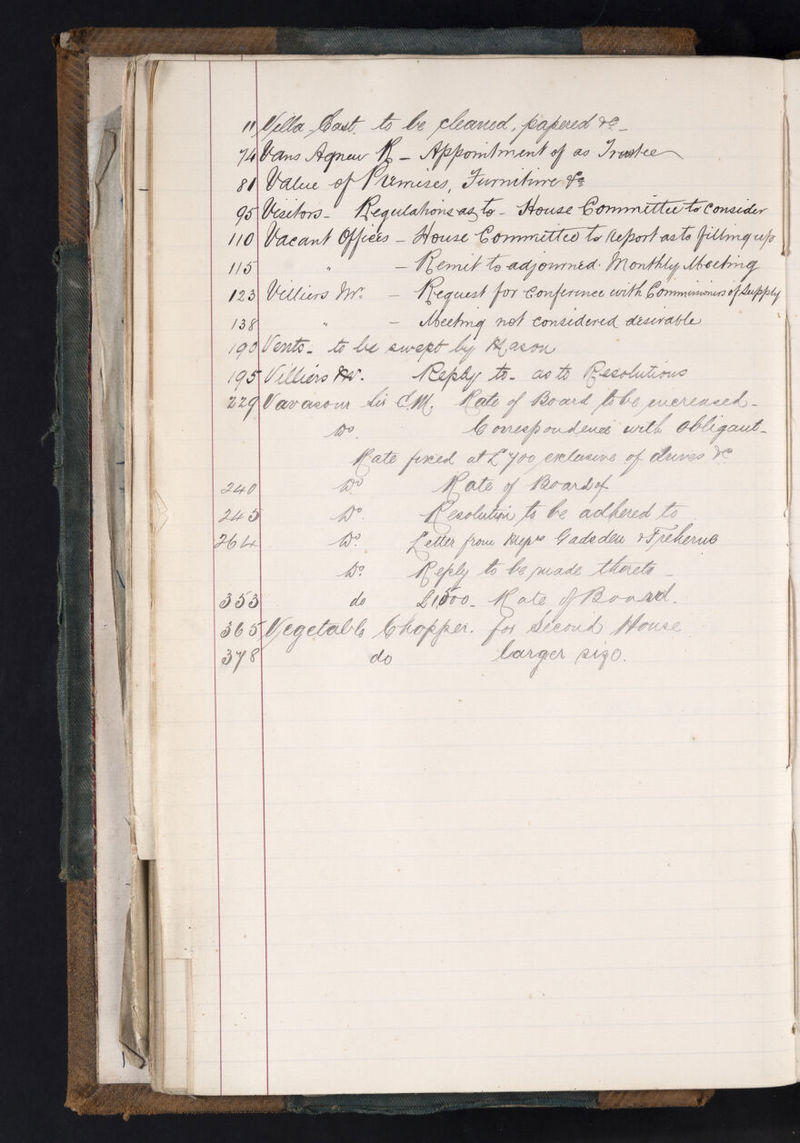 11 Villa East. to be cleaned, papered &c -
74 Vans Agnew R - Appointment of as Trustee
81 Value of Premises, Furniture &c
95 Visitors - Regulations as to - House Committee to consider
110 Vacant Offices - House Committee to report as to filling up
115 " - Remit to adjourned Monthly Meeting
123 Villiers Mr. - Request for Conference with Commissioners of Supply
138 " - Meeting not considered desirable
190 Vents - to be swept by Mason
195 Villiers Mr. Reply to - as to Resolutions
229 Vavasour Sir C.M. Rate of Board to be increased -
Do. Correspondence with Obligant -
Rate fixed at £700 exclusive of drives &c
240 Do Rate of Board of
245 Do. Resolution to be adhered to
264 Do. Letter from Messrs Gadsden & Treherne
Do. Reply to be made thereto -
353 do £1500 - Rate of Board.
365 Vegetable Chopper. for Second House
378 do larger size.